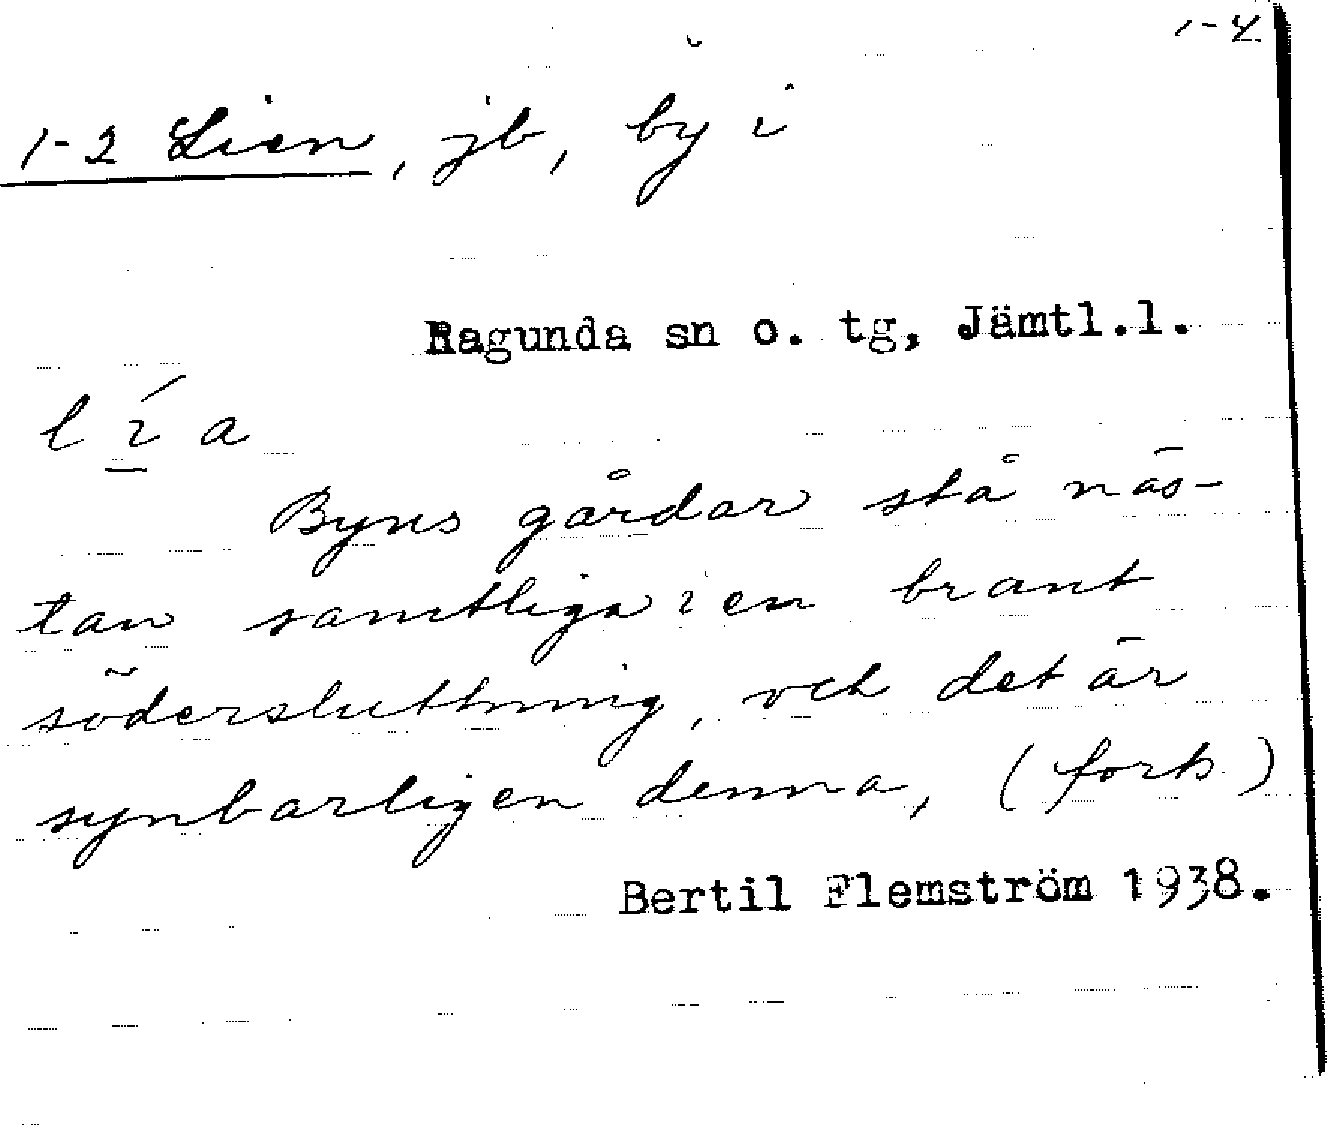 1-4
1-2 Lien, jb, by i
Ragunda sn o. tg, Jämtl.l.
l í a
Byns gårdar stå näs-
tan samtliga i en brant
södersluttning, och det är
synbarligen denna, (forts.)
Bertil Flemström 1938.